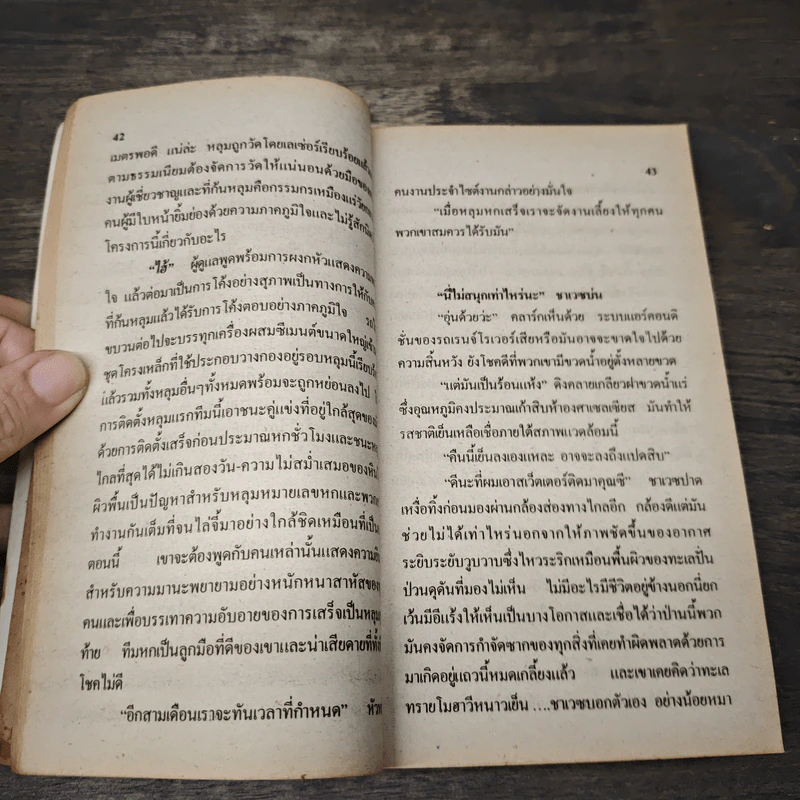 42
เมตรพอดี แน่ล่ะ หลุมถูกวัดโดยเลเซ่อร์เรียบร้อยแล้ว
ตามธรรมเนียมต้องจัดการวัดให้แน่นอนด้วยมือของ
งานผู้เชี่ยวชาญและที่ก้นหลุมคือกรรมกรเหมืองแร่
คนผู้มีใบหน้ายิ้มย่องด้วยความภาคภูมิใจและไม่รู้สักนิด
โครงการนี้เกี่ยวกับอะไร
“ไฮ้” ผู้ดูแลพูดพร้อมการผงกหัวแสดงความ
ใจ แล้วต่อมาเป็นการโค้งอย่างสุภาพเป็นทางการให้กับ
ที่ก้นหลุมแล้วได้รับการโค้งตอบอย่างภาคภูมิใจ
ขบวนต่อไปจะบรรทุกเครื่องผสมซีเมนต์ขนาดใหญ่เข้า
ชุดโครงเหล็กที่ใช้ประกอบวางกองอยู่รอบหลุมนี้เรียบ
แล้วรวมทั้งหลุมอื่นๆทั้งหมดพร้อมจะถูกหย่อนลงไป
การติดตั้งหลุมแรกทีมนี้เอาชนะคู่แข่งที่อยู่ใกล้สุดของ
ด้วยการติดตั้งเสร็จก่อนประมาณหกชั่วโมงและชนะ
ไกลที่สุดได้ไม่เกินสองวัน-ความไม่สม่ำเสมอของหิน
ผิวพื้นเป็นปัญหาสำหรับหลุมหมายเลขหกและพวก
ทำงานกันเต็มที่จนไล่จี้มาอย่างใกล้ชิดเหมือนที่เป็น
ตอนนี้ เขาจะต้องพูดกับคนเหล่านั้นแสดงความ
สำหรับความมานะพยายามอย่างหนักหนาสาหัสของ
คนและเพื่อบรรเทาความอับอายของการเสร็จเป็นหลุม
ท้าย ทีมหกเป็นลูกมือที่ดีของเขาและน่าเสียดายที่
โชคไม่ดี
“อีกสามเดือนเราจะทันเวลาที่กำหนด”
43
คนงานประจำไซต์งานกล่าวอย่างมั่นใจ
“เมื่อหลุมหกเสร็จเราจะจัดงานเลี้ยงให้ทุกคน
พวกเขาสมควรได้รับมัน”
“นี่ไม่สนุกเท่าไหร่นะ” ชาเวซบ่น
“อุ่นด้วยว่ะ” คลาร์กเห็นด้วย ระบบแอร์คอนดิ
ชั่นของรถเรนจ์โรเวอร์เสียหรือมันอาจจะขาดใจไปด้วย
ความสิ้นหวัง ยังโชคดีที่พวกเขามีขวดน้ำอยู่ตั้งหลายขวด
“แต่มันเป็นร้อนแห้ง” ดิงคลายเกลียวฝาขวดน้ำแร่
ซึ่งอุณหภูมิคงประมาณเก้าสิบห้าองศาเซลเซียส มันทำให้
รสชาติเย็นเหลือเชื่อภายใต้สภาพแวดล้อมนี้
“คืนนี้เย็นลงเองแหละ อาจจะลงถึงแปดสิบ”
“ดีนะที่ผมเอาสเว็ตเตอร์ติดมาคุณซี” ชาเวซปาด
เหงื่อทิ้งก่อนมองผ่านกล้องส่องทางไกลอีก กล้องดีแต่มัน
ช่วยไม่ได้เท่าไหร่นอกจากให้ภาพชัดขึ้นของอากาศ
ระยิบระยับวูบวาบซึ่งไหวระริกเหมือนพื้นผิวของทะเลปั่น
ป่วนดุดันที่มองไม่เห็น ไม่มีอะไรมีชีวิตอยู่ข้างนอกนี่ยก
เว้นมีอีแร้งให้เห็นเป็นบางโอกาสและเชื่อได้ว่าป่านนี้พวก
มันคงจัดการกำจัดซากของทุกสิ่งที่เคยทำผิดพลาดด้วยการ
มาเกิดอยู่แถวนี้หมดเกลี้ยงแล้ว และเขาเคยคิดว่าทะเล
ทรายโมฮาวีหนาวเย็น ....ชาเวซบอกตัวเอง อย่างน้อยหมา